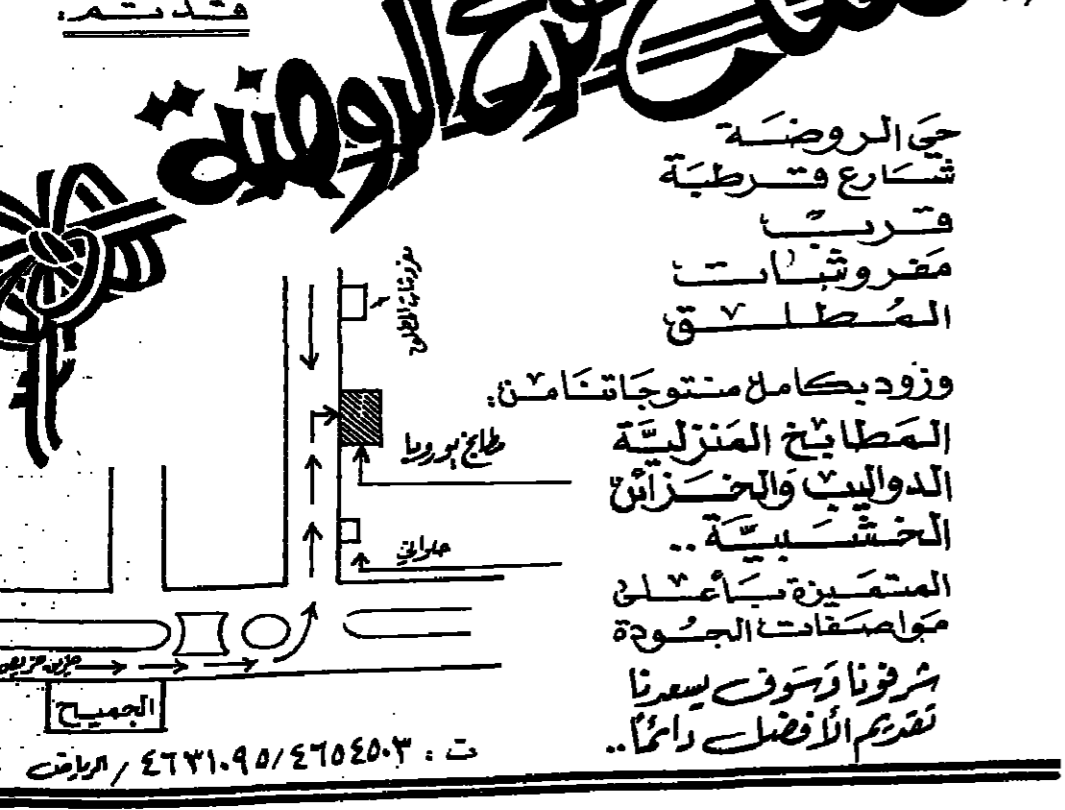 فرع الروضة
حي الروضة
شارع قرطبة
قريب
مفروشات
المطلق
وزود بكامل منتوجاتنا من:
المطابخ المنزلية
الدواليب والخزائن
الخشبية..
المتميزة بأعلى
مواصفات الجودة
شرفونا وسوف يسعدنا
تقديم الأفضل دائمًا..
مفروشات المطلق
مطابخ يوروبا
حلواني
طريق خريص
الجميح
ت : ٤٦٥٤٥٠٣/٤٦٣١٠٩٥ / الرياض